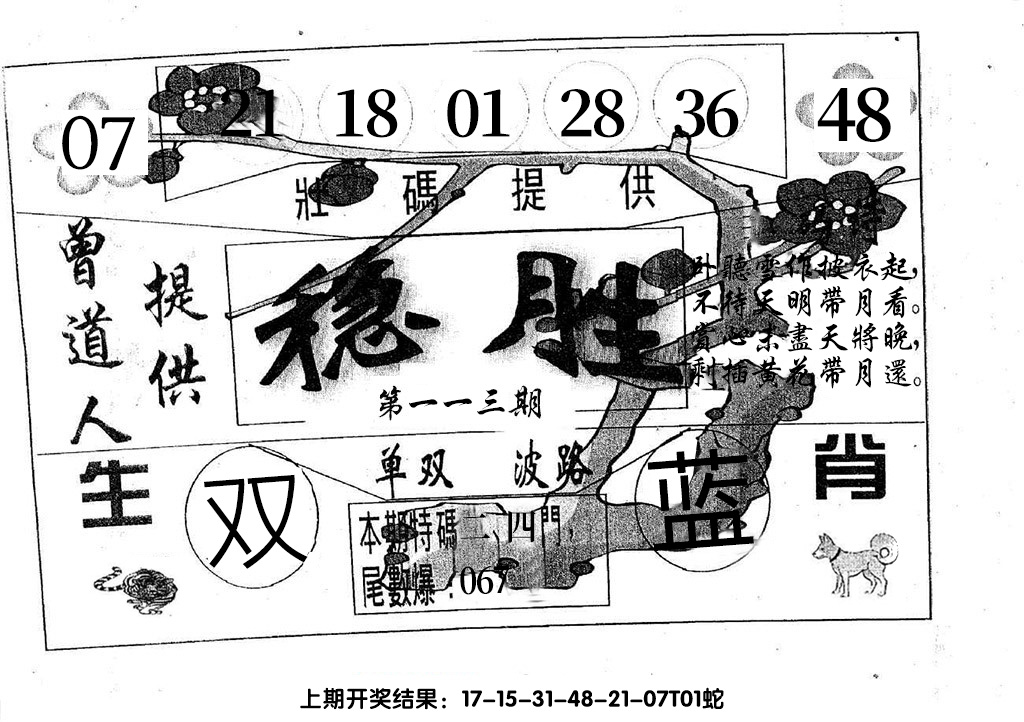 07 21 18 01 28 36 48
壯碼提供
曾道人
提供
穩胜
第一一三期
卧聽雲作披衣起，
不待天明帶月看。
賞心未盡天將晚，
剩插黄花帶月還。
单双 波路
生肖
双
蓝
本期特碼二、四門，
尾數爆：067
上期开奖结果：17-15-31-48-21-07T01蛇